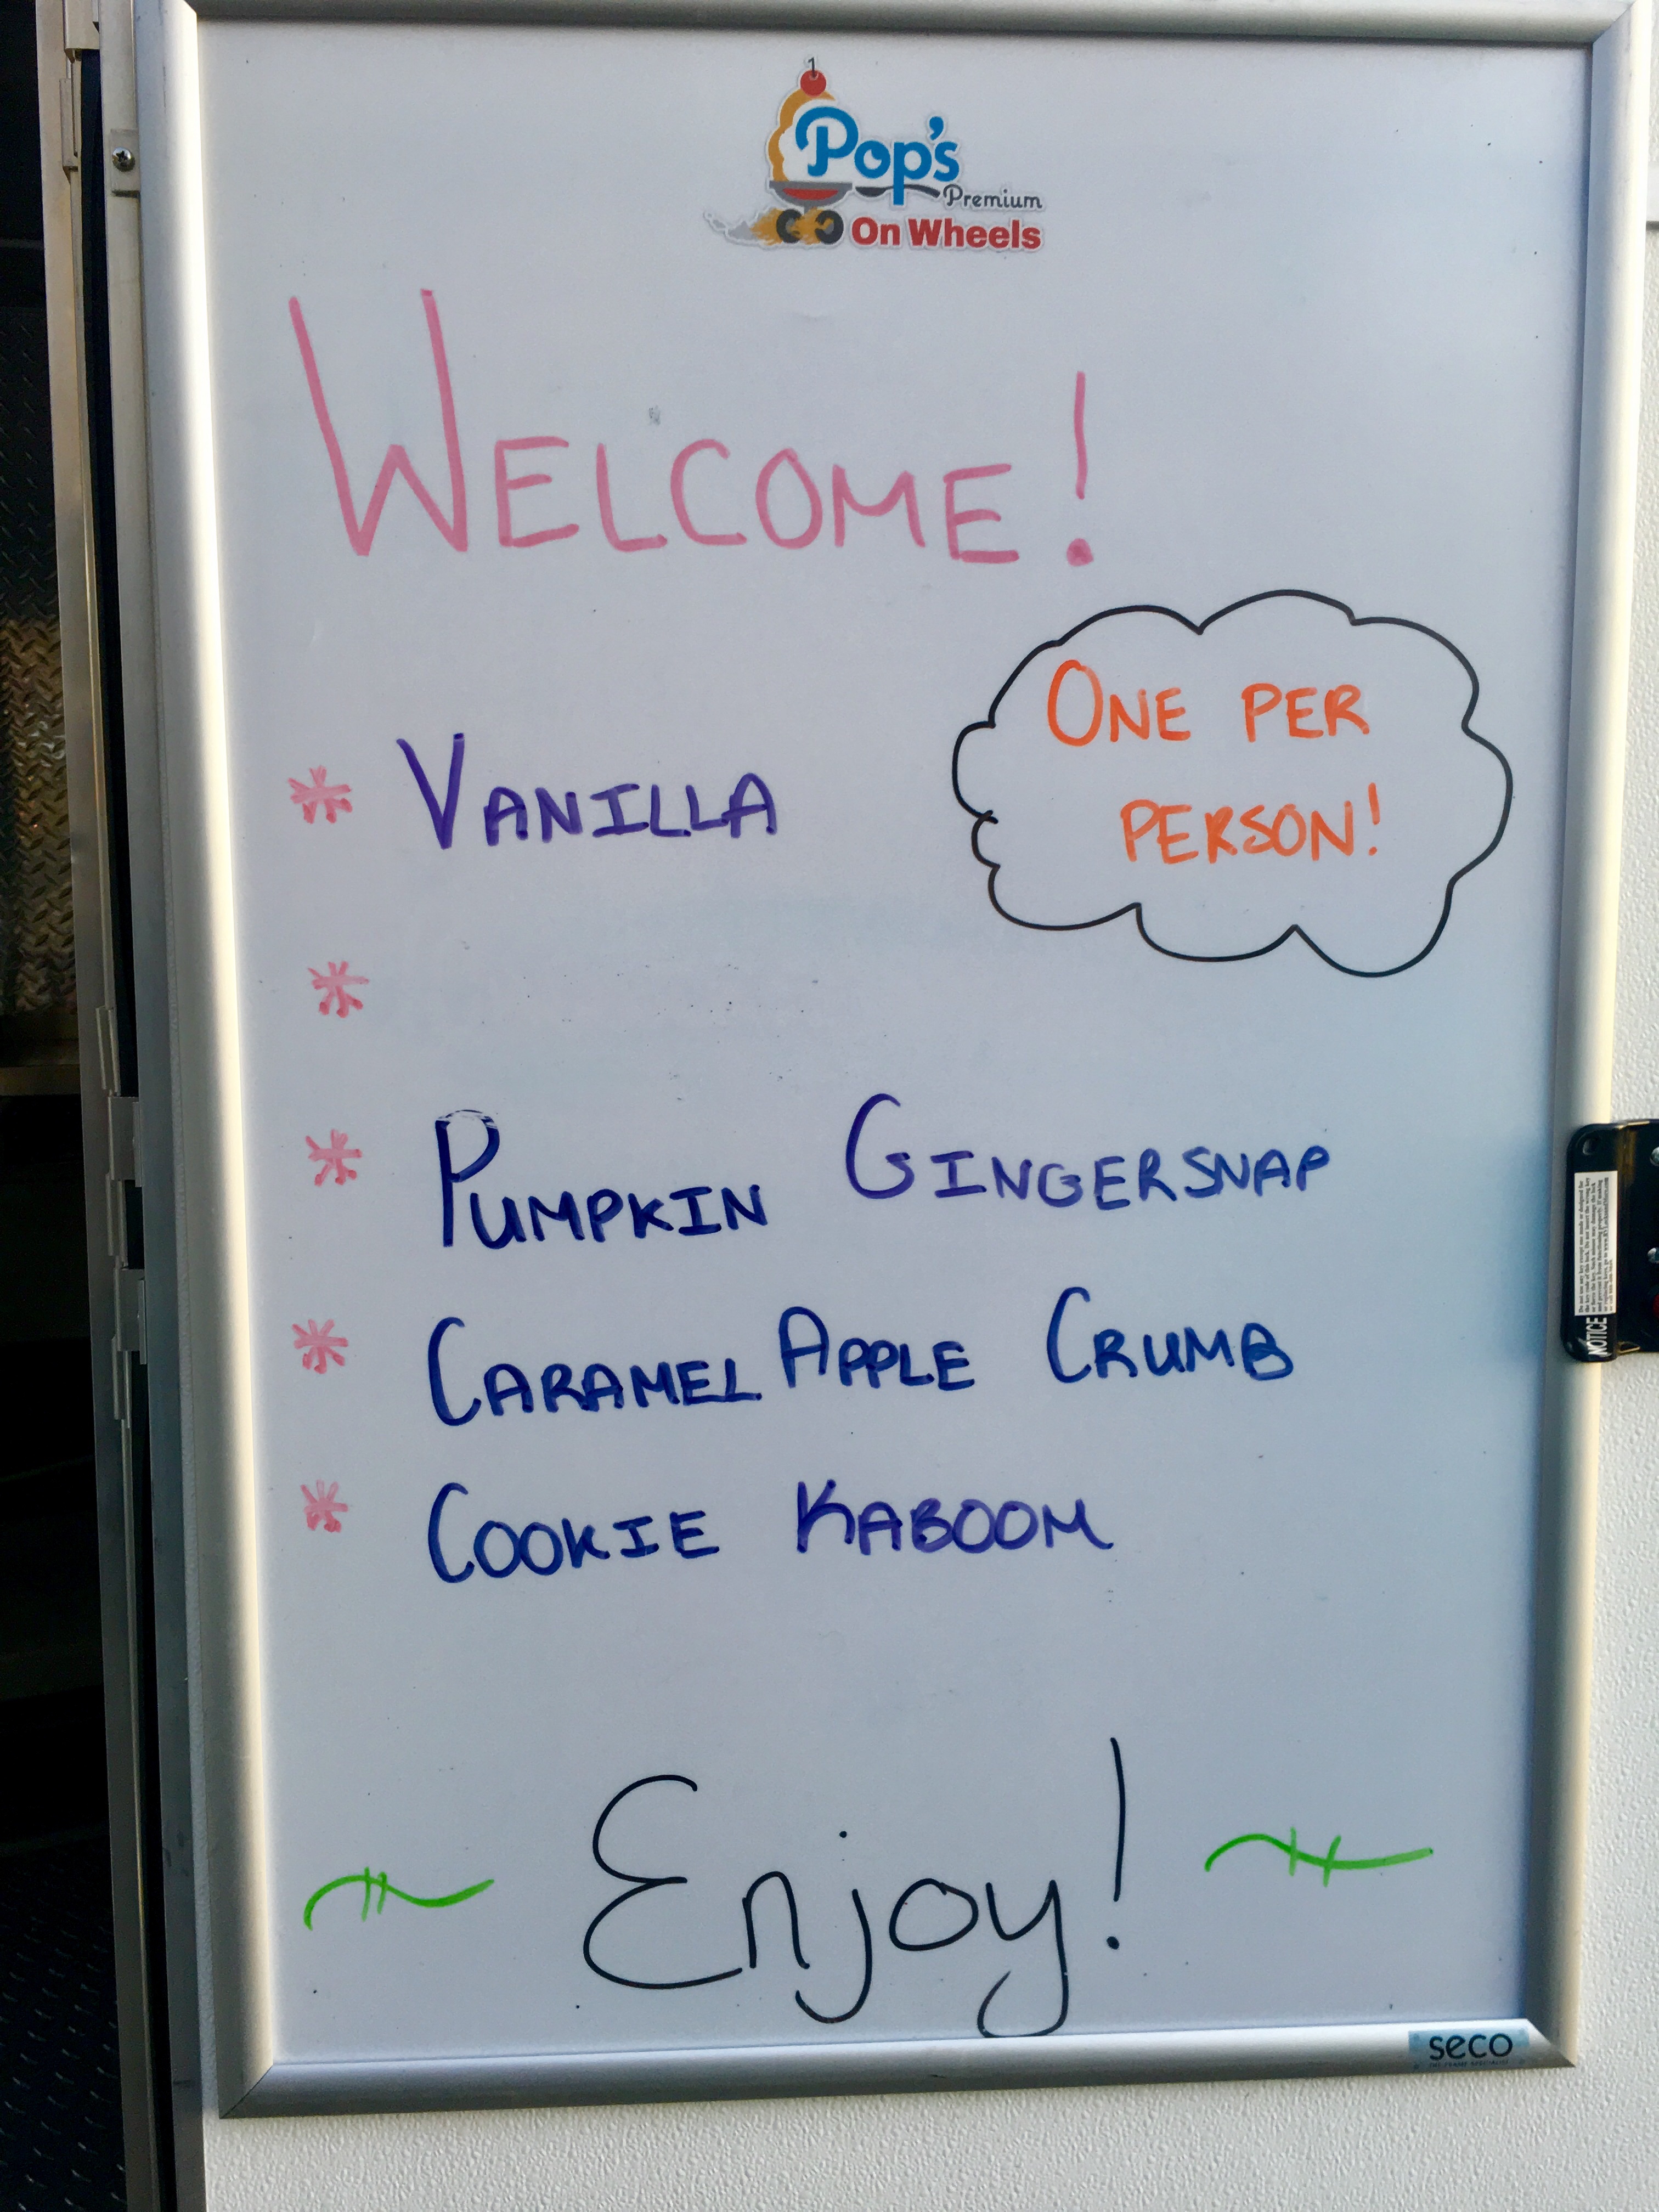 Pop's
Premium
On Wheels
WELCOME!
ONE PER
PERSON!
* VANILLA
*
* PUMPKIN GINGERSNAP
* CARAMEL APPLE CRUMB
* COOKIE KABOOM
Enjoy!
NOTICE
seco